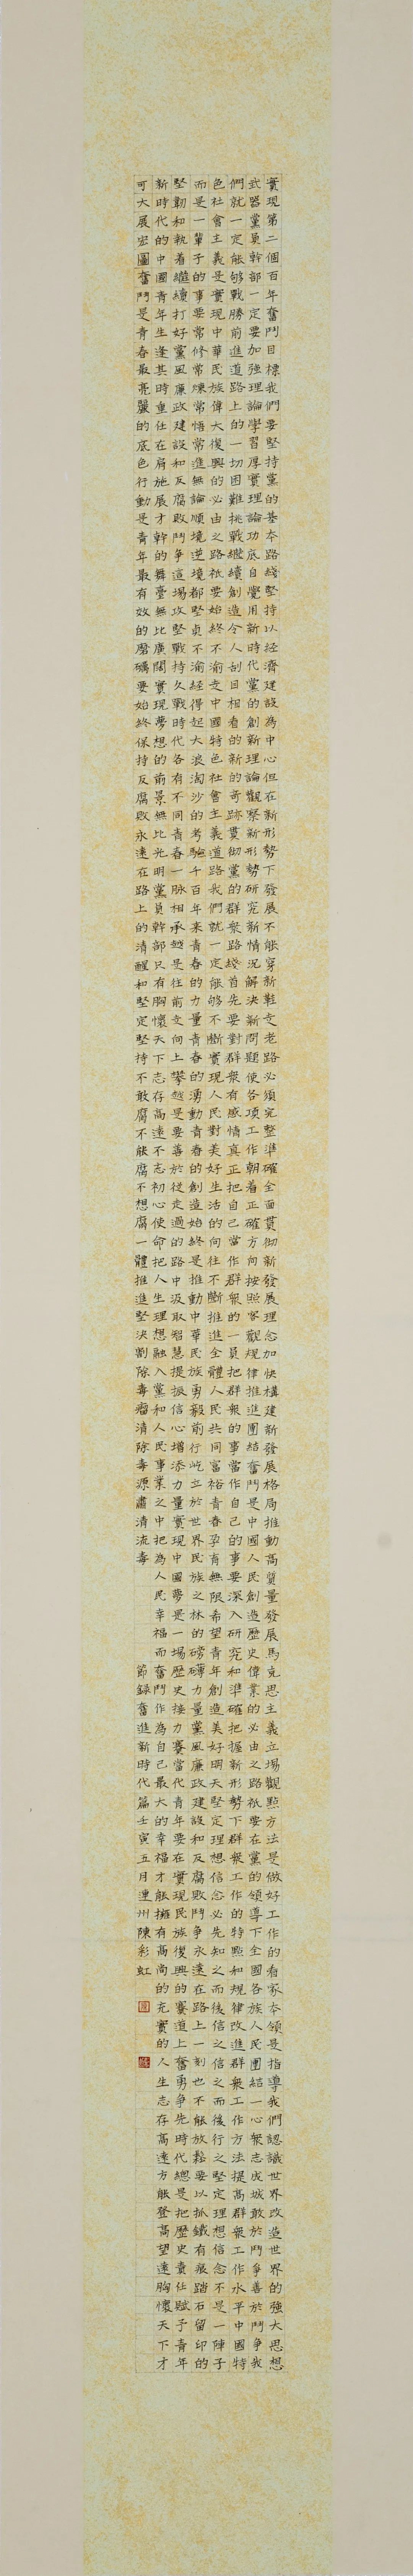 實現第二個百年奮鬥目標我們要堅持黨的基本路綫堅持以經濟建設為中心但在新形勢下發展不能穿新鞋走老路必須完整準確全面貫彻新發展理念加快構建新發展格局推動高質量發展馬克思主義立場觀點方法是做好工作的看家本領是指導我們認識世界改造世界的強大思想
武器黨員幹部一定要加強理論學習厚實理論功底自覺用新時代黨的創新理論觀察新形勢研究新情況解決新問題使各項工作朝着正確方向按照客觀規律推進團結奮鬥是中國人民創造歷史偉業的必由之路祇要在黨的領導下全國各族人民團結一心衆志成城敢於鬥争善於鬥争我
們就一定能够戰勝前進道路上的一切困難挑戰繼續創造令人刮目相看的新的奇跡貫彻黨的群衆路綫首先要對群衆有感情真正把自己當作群衆的一員把群衆的事當作自己的事要深入研究和準確把握新形勢下群衆工作的特點和規律改進群衆工作方法提高群衆工作水平中國特
色社會主義是實現中華民族偉大復興的必由之路祇要始終不渝走中國特色社會主義道路我們就一定能够不斷實現人民對美好生活的向往不斷推進全體人民共同富裕青春孕育無限希望青年創造美好明天堅定理想信念必先知之而後信之信之而後行之堅定理想信念不是一陣子
而是一輩子的事要常修常煉常悟常進無論順境逆境都堅貞不渝經得起大浪淘沙的考驗千百年來青春的力量青春的湧動青春的創造始終是推動中華民族勇毅前行屹立於世界民族之林的磅礴力量黨風廉政建設和反腐敗鬥争永遠在路上一刻也不能放鬆要以抓鐵有痕踏石留印的
堅韌和執着繼續打好黨風廉政建設和反腐敗鬥争這場攻堅戰持久戰時代各有不同青春一脉相承越是往前走向上攀越是要善於從走過的路中汲取智慧提振信心增添力量實現中國夢是一場歷史接力賽當代青年要在實現民族復興的賽道上奮勇争先時代總是把歷史責任賦予青年
新時代的中國青年生逢其時重任在肩施展才幹的舞臺無比廣闊實現夢想的前景無比光明黨員幹部只有胸懷天下志存高遠不忘初心使命把人生理想融入黨和人民事業之中把為人民幸福而奮鬥作為自己最大的幸福才能擁有高尚的充實的人生志存高遠方能登高望遠胸懷天下才
可大展宏圖奮鬥是青春最亮麗的底色行動是青年最有效的磨礪要始終保持反腐敗永遠在路上的清醒和堅定堅持不敢腐不能腐不想腐一體推進堅決剷除毒瘤清除毒源肅清流毒
節録奮進新時代篇壬寅五月連州陳彩虹